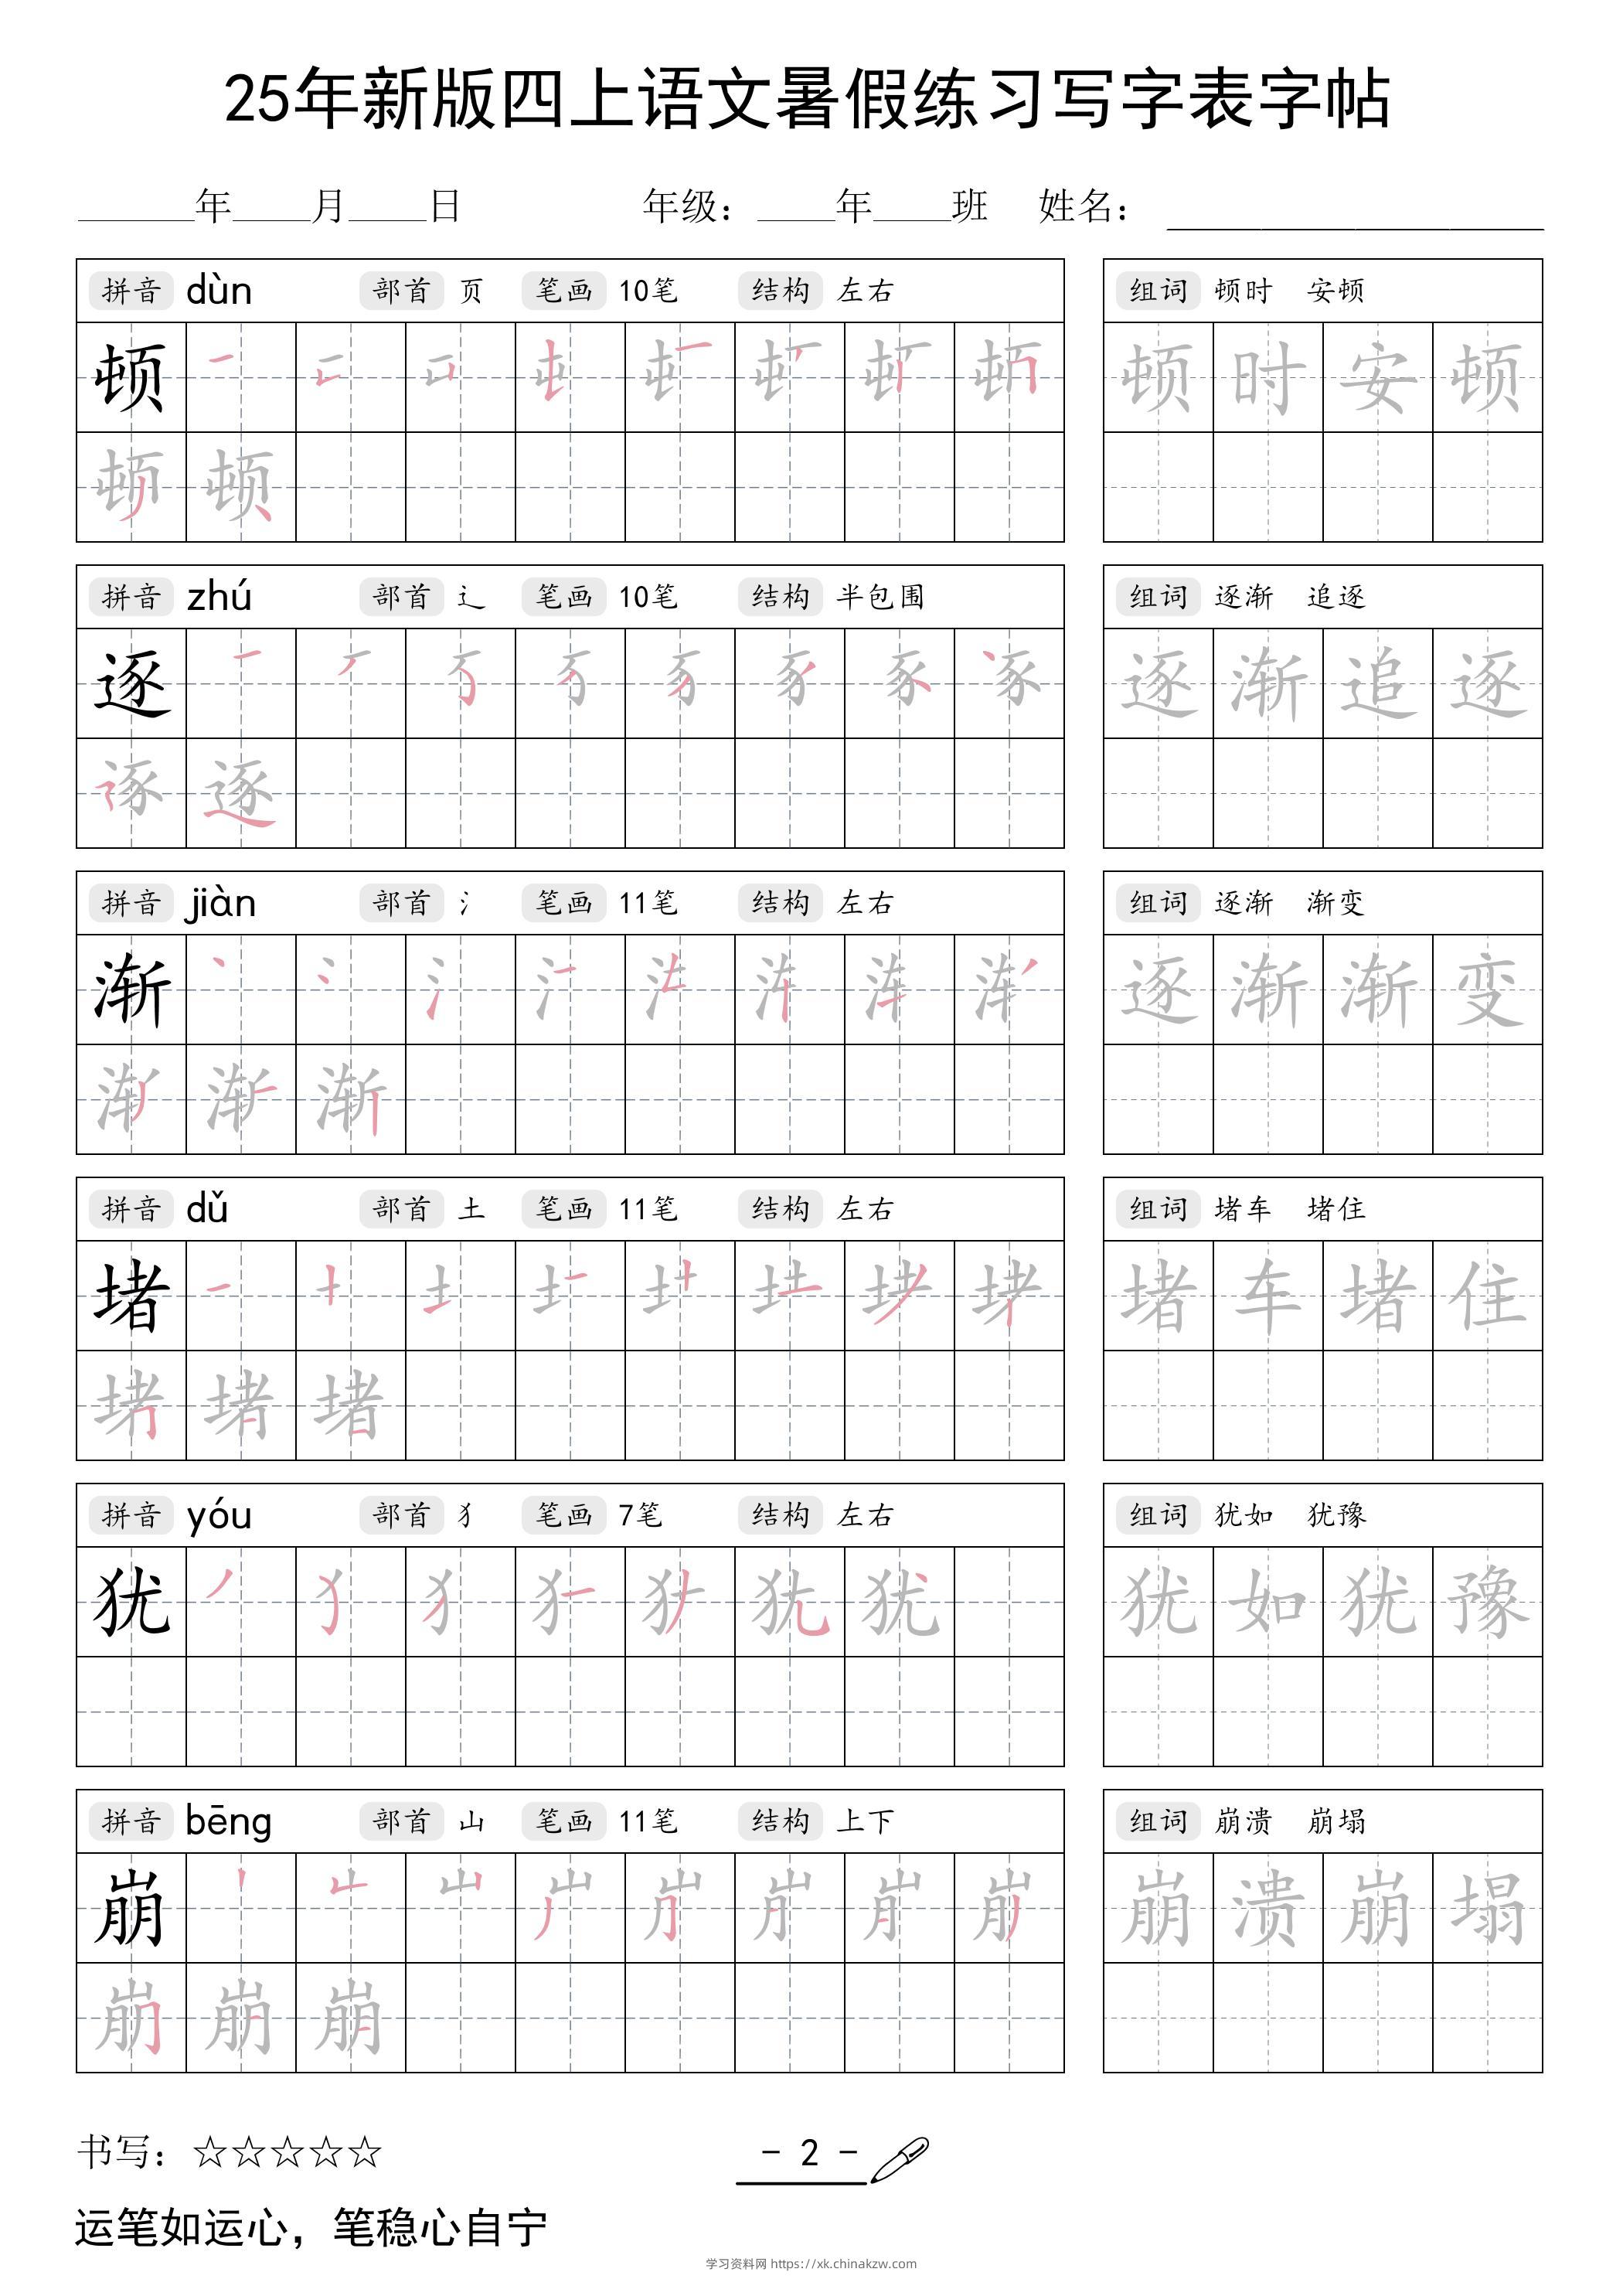 25年新版四上语文暑假练习写字表字帖
______年____月____日 年级：____年____班 姓名：
拼音 dùn 部首 页 笔画 10笔 结构 左右 组词 顿时 安顿
顿 顿时安顿
顿
拼音 zhú 部首 辶 笔画 10笔 结构 半包围 组词 逐渐 追逐
逐 逐渐追逐
逐
拼音 jiàn 部首 氵 笔画 11笔 结构 左右 组词 逐渐 渐变
渐 逐渐渐变
渐
拼音 dǔ 部首 土 笔画 11笔 结构 左右 组词 堵车 堵住
堵 堵车堵住
堵
拼音 yóu 部首 犭 笔画 7笔 结构 左右 组词 犹如 犹豫
犹 犹 犹如犹豫
拼音 bēng 部首 山 笔画 11笔 结构 上下 组词 崩溃 崩塌
崩 崩溃崩塌
崩
书写：☆☆☆☆☆ - 2 -
运笔如运心，笔稳心自宁
学习资料网 https://xk.chinakzw.com